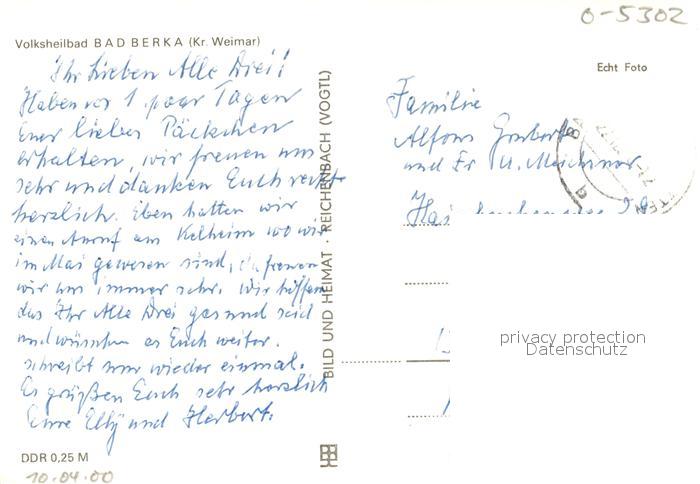 O-5302
Volksheilbad BAD BERKA (Kr. Weimar)
Echt Foto
Ihr Lieben Alle Drei!
Haben vor 1 paar Tagen
Euer liebes Päckchen
erhalten, wir freuen uns
sehr und danken Euch recht
herzlich. Eben hatten wir
einen Anruf aus Kelheim wo wir
im Mai gewesen sind, da freuen
wir uns immer sehr. Wir hoffen
das Ihr Alle Drei gesund seid
und wünschen es Euch weiter.
schreibt nur wieder einmal.
Es grüßen Euch sehr herzlich
Eure Elly und Herbert.
DDR 0,25 M
10.04.00
BILD UND HEIMAT · REICHENBACH (VOGTL)
Familie
Alfons
und Fr.
privacy protection
Datenschutz